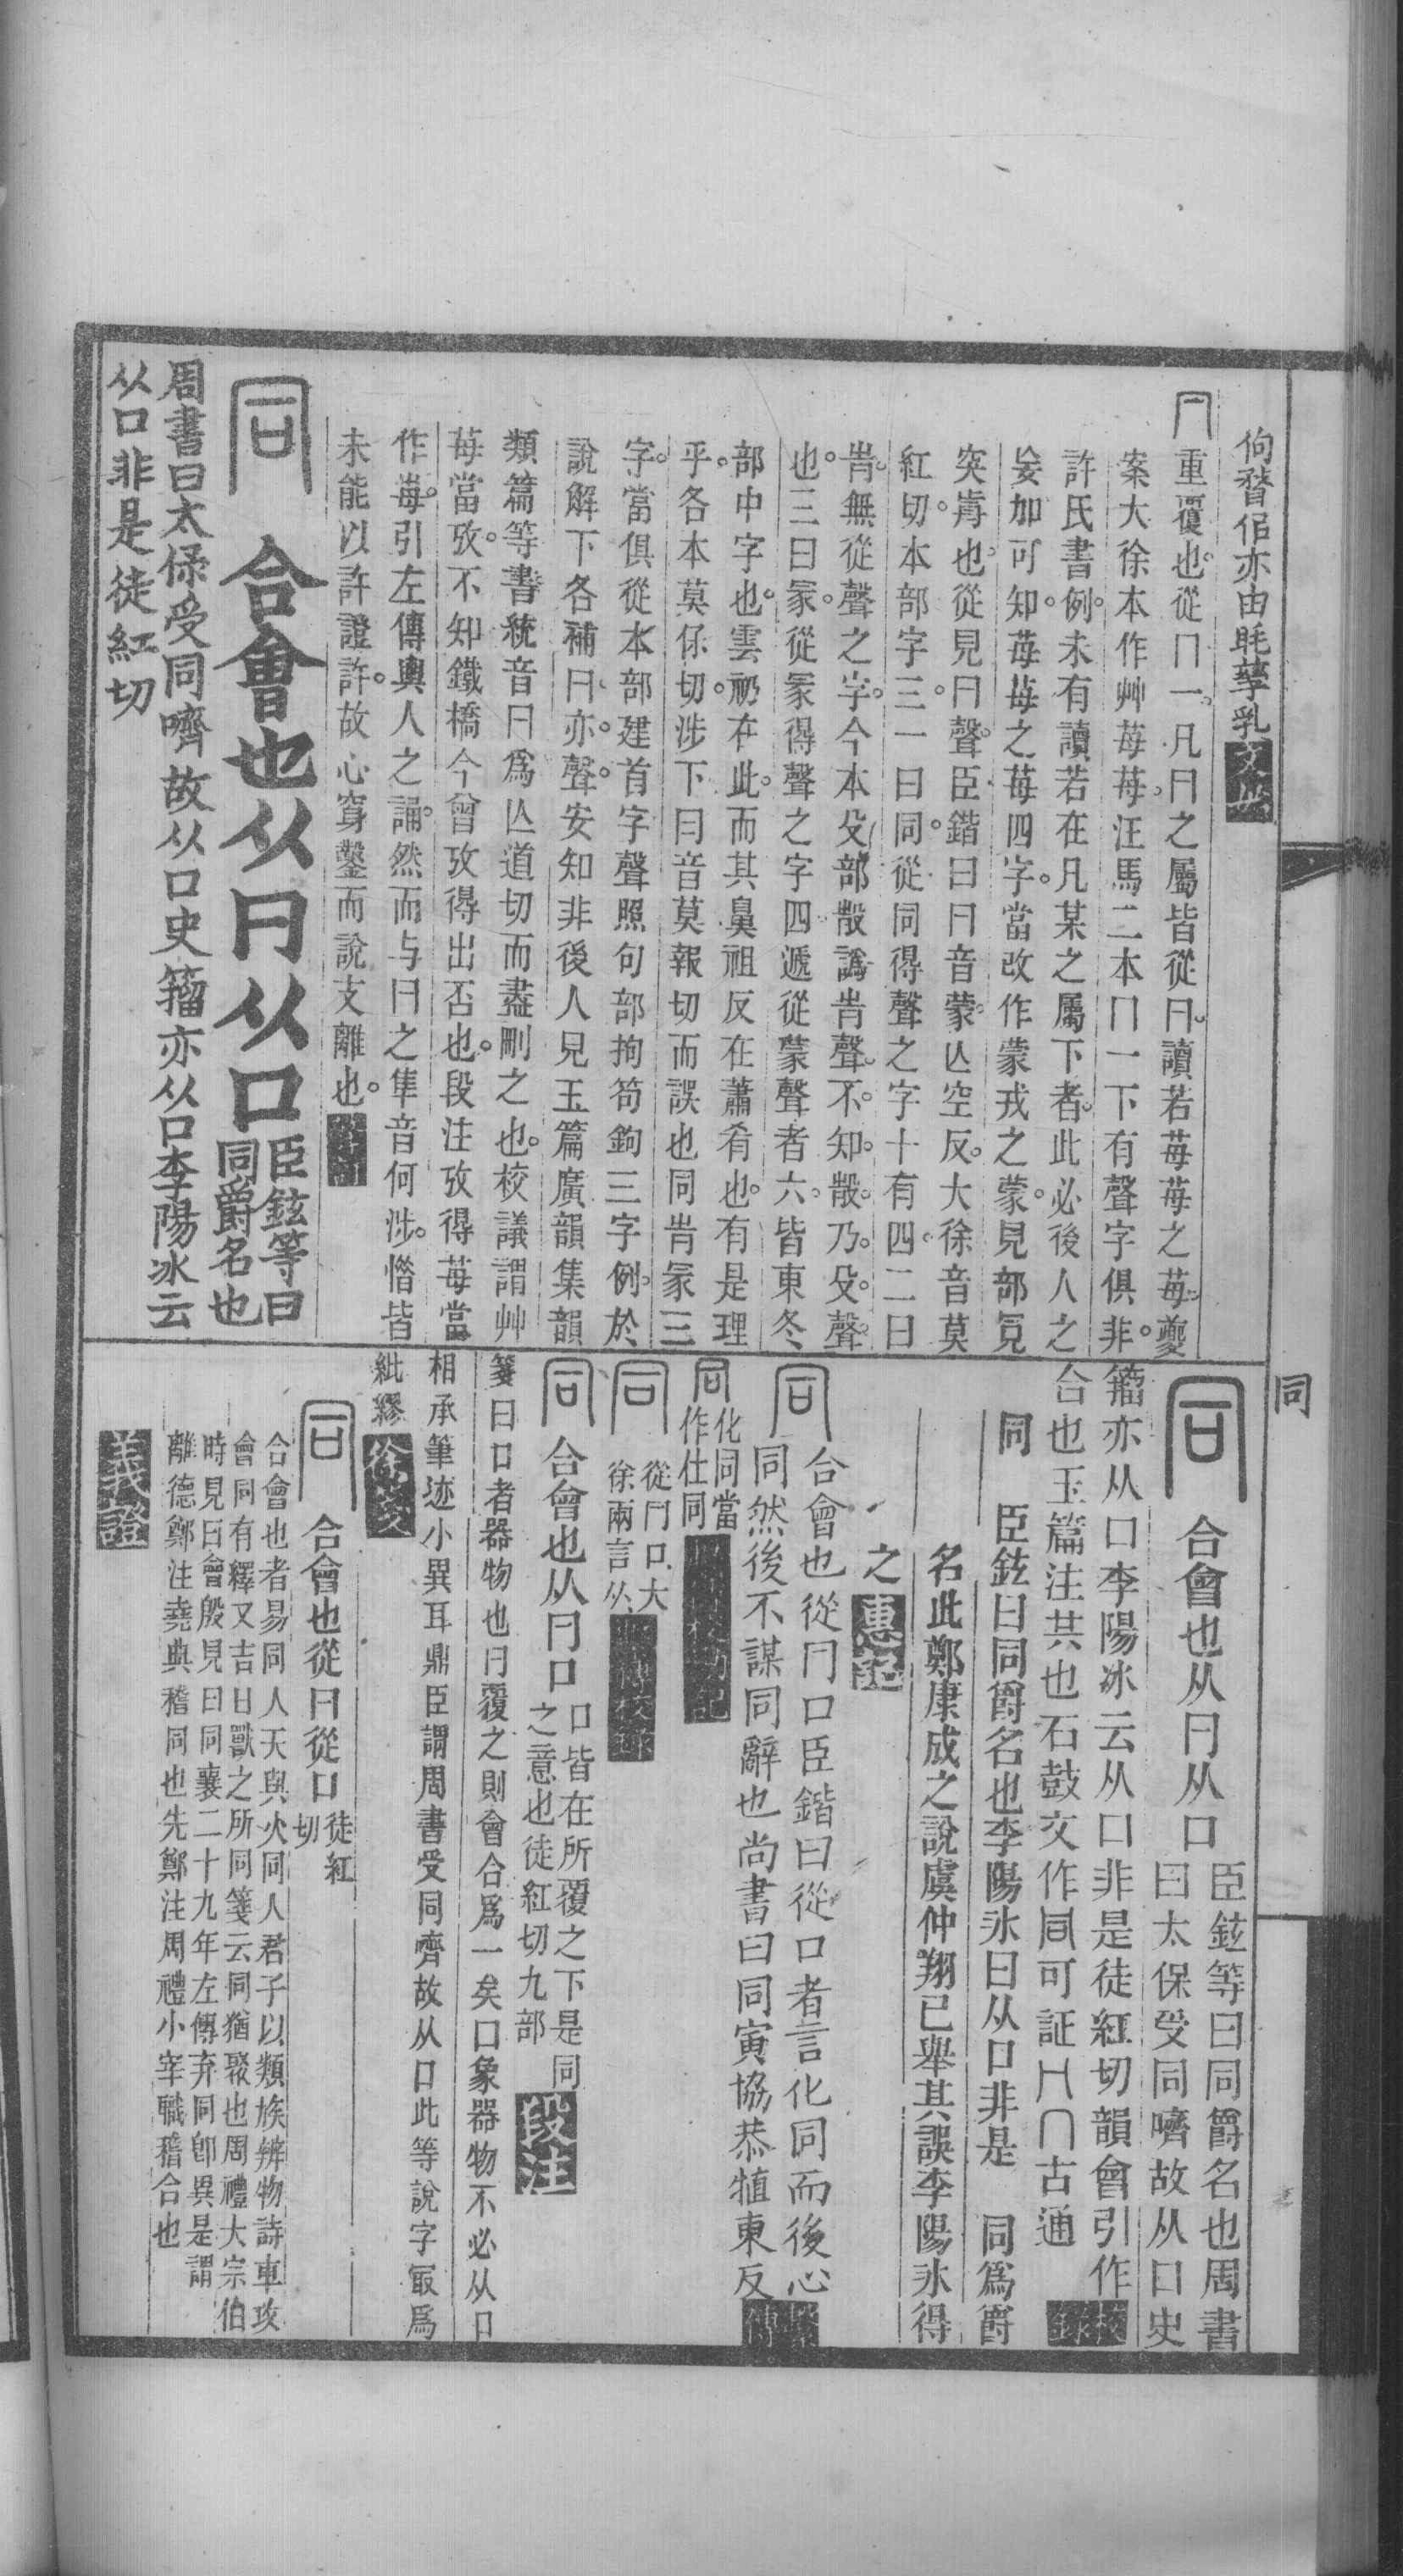 佝瞀侶亦由眊孳乳
冂重覆也從冂一凡冃之屬皆從冃讀若莓莓之莓夔
案大徐本作艸莓莓汪馬二本冂一下有聲字俱非
許氏書例未有讀若在凡某之屬下者此必後人之
妄加可知莓莓之莓四字當改作蒙戎之蒙見部覓
突歬也從見冃聲臣鍇曰冃音蒙亾空反大徐音莫
紅切本部字三一曰同從同得聲之字十有四二曰
㡀無從聲之字今本殳部㱿譌㡀聲不知㱿乃殳聲
也三曰冡從冡得聲之字四遞從蒙聲者六皆東冬
部中字也雲礽在此而其鼻祖反在蕭肴也有是理
乎各本莫保切涉下冃音莫報切而誤也同㡀冡三
字當俱從本部建首字聲照句部拘笱鉤三字例於
說解下各補曰亦聲安知非後人見玉篇廣韻集韻
類篇等書統音冃爲亾道切而盡刪之也校議謂艸
莓當攷不知鐵橋今曾攷得出否也段注攷得莓當
作莓引左傳輿人之誦然而与冃之隼音何涉惛皆
未能以許證許故心窮鑿而說支離也
同 合會也从冃从口 臣鉉等曰
同爵名也
周書曰太保受同嚌故从口史籀亦从口李陽冰云
从口非是徒紅切
同
同 合會也从冃从口 臣鉉等曰同爵名也周書
曰太保受同嚌故从口史
籀亦从口李陽冰云从口非是徒紅切韻會引作
合也玉篇注共也石鼓文作同可証冃冂古通 校錄
同 臣鉉曰同爵名也李陽氷曰从口非是 同爲爵
名此鄭康成之說虞仲翔已舉其誤李陽氷得
之 惠記
同 合會也從冃口臣鍇曰從口者言化同而後心
同然後不謀同辭也尚書曰同寅協恭㨁東反 繫傳
同 化同當
作仕同
同 從冃口大
徐兩言从
同 合會也从冃口 口皆在所覆之下是同
之意也徒紅切九部 段注
箋曰口者器物也冃覆之則會合爲一矣口象器物不必从口
相承筆迹小異耳鼎臣謂周書受同嚌故从口此等說字冣爲
紕繆 徐箋
同 合會也從冃從口 徒紅
切
合會也者易同人天與火同人君子以類族辨物詩車攻
會同有繹又吉日獸之所同箋云同猶聚也周禮大宗伯
時見曰會殷見曰同襄二十九年左傳弃同卽異是謂
離德鄭注堯典稽同也先鄭注周禮小宰職稽合也
義證